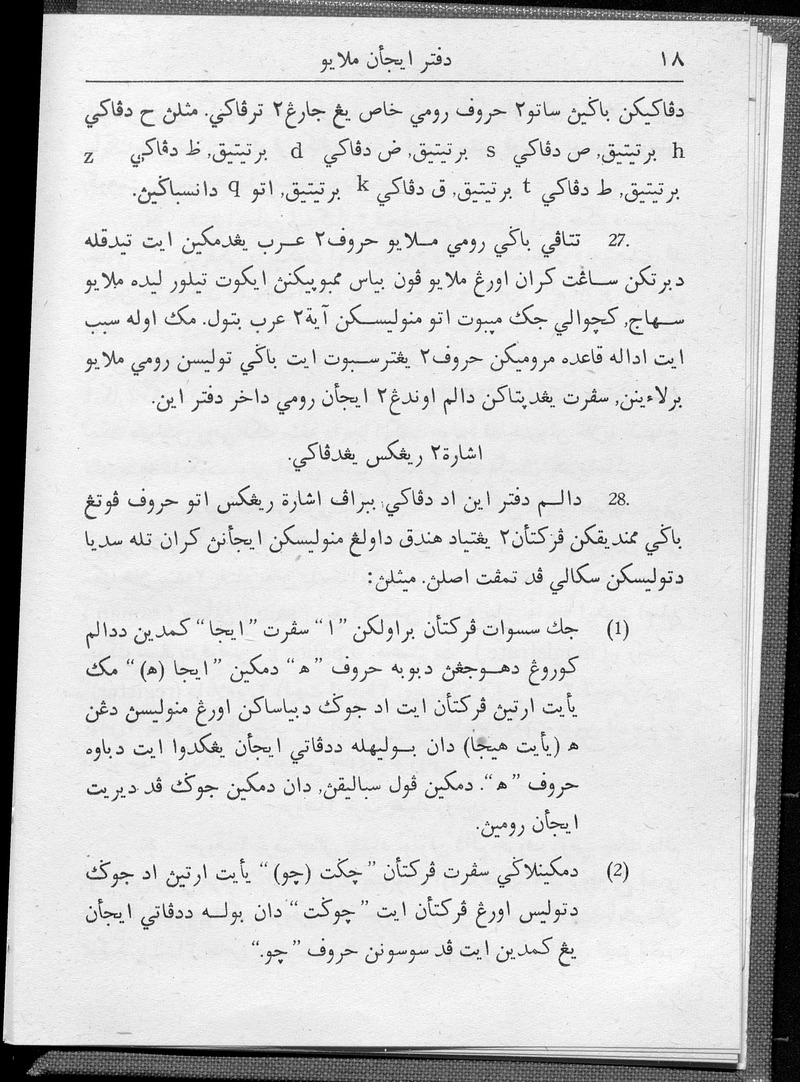 ١٨
دفتر ايجأن ملايو
دڤاكيكن باڬين ساتو٢ حروف رومي خاص يڠ جارڠ٢ ترڤاكي. مثلن ح دڤاكي
h برتيتيق, ص دڤاكي s برتيتيق, ض دڤاكي d برتيتيق, ظ دڤاكي z
برتيتيق, ط دڤاكي t برتيتيق, ق دڤاكي k برتيتيق, اتو q دانسباڬين.
27. تتاڤي باڬي رومي مــلايو حروف٢ عــرب يڠدمكين ايت تيدقله
دبرتكن ســاڠت كران اورڠ ملايو ڤون بياس ممبوڽيكنڽ ايكوت تيلور ليده ملايو
ســهاج, كچوالي جك مڽبوت اتو منوليســكن آية٢ عرب بتول. مك اوله سبب
ايت اداله قاعده مروميكن حروف٢ يڠترســبوت ايت باڬي توليسن رومي ملايو
برلاءينن, سڤرت يڠدڽتاكن دالم اوندڠ٢ ايجأن رومي داخر دفتر اين.
اشارة٢ ريڠكس يڠدڤاكي.
28. دالــم دفتر اين اد دڤاكي ببراڤ اشارة ريڠكس اتو حروف ڤوتڠ
باڬي ممنديقكن ڤركتأن٢ يڠتياد هندق داولڠ منوليسكن ايجأنڽ كران تله سديا
دتوليسكن سكالي ڤد تمڤت اصلڽ. ميثلڽ:
(1) جك سسوات ڤركتأن براولكن ”ا“ سڤرت ”ايجا“ كمدين ددالم
كوروڠ دهــوجڠڽ دبوبه حروف ”ه“ دمكين ”ايجا (ه)“ مك
يأيت ارتين ڤركتأن ايت اد جوڬ دبياساكن اورڠ منوليسڽ دڠن
ه (يأيت هيجا) دان بــوليهله ددڤاتي ايجأن يڠكدوا ايت دباوه
حروف ”ه“. دمكين ڤول سباليقڽ, دان دمكين جوڬ ڤد ديريت
ايجأن روميڽ.
(2) دمكينلاڬي سڤرت ڤركتأن ”چڬت (چو)“ يأيت ارتين اد جوڬ
دتوليس اورڠ ڤركتأن ايت ”چوڬت“ دان بولــه ددڤاتي ايجأن
يڠ كمدين ايت ڤد سوسونن حروف ”چو.“